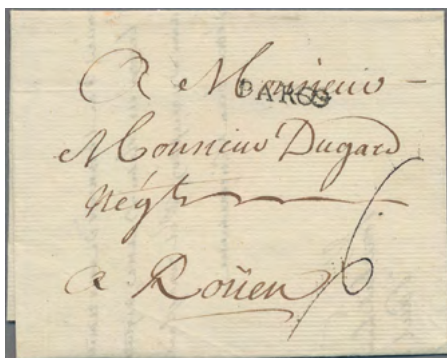 A Monsieur
PARIS
Monsieur Dugard
Négt
a Roüen 6